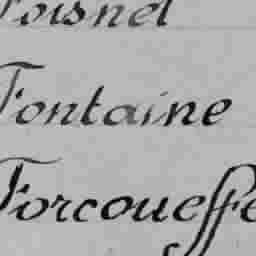 Foisnel
Fontaine
Forcoueffe